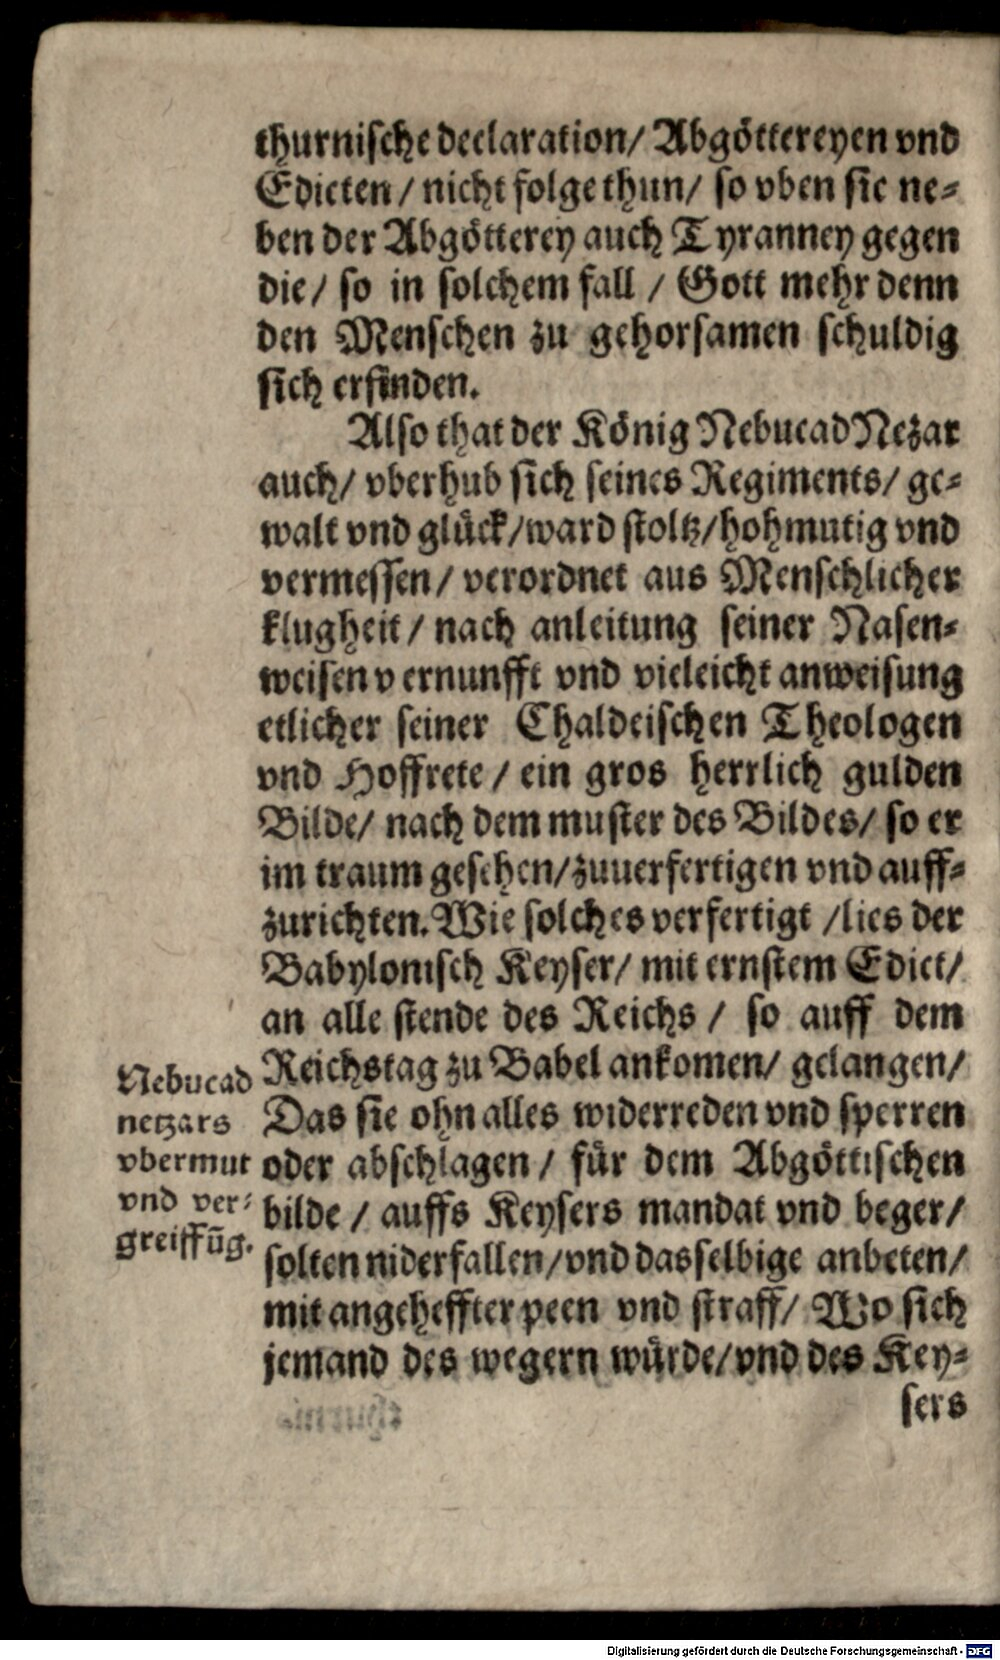 thurnische declaration/ Abgöttereyen vnd
Edicten / nicht folge thun/ so vben sie ne-
ben der Abgötterey auch Tyranney gegen
die/ so in solchem fall / Gott mehr denn
den Menschen zu gehorsamen schuldig
sich erfinden.
Also that der König NebucadNezar
auch/ vberhub sich seines Regiments/ ge-
walt vnd glück/ward stoltz/hohmutig vnd
vermessen/ verordnet aus Menschlicher
klugheit/ nach anleitung seiner Nasen-
weisen vernunfft vnd vieleicht anweisung
etlicher seiner Chaldeischen Theologen
vnd Hoffrete/ ein gros herrlich gulden
Bilde/ nach dem muster des Bildes/ so er
im traum gesehen/zuuerfertigen vnd auff-
zurichten. Wie solches verfertigt /lies der
Babylonisch Keyser/ mit ernstem Edict/
an alle stende des Reichs / so auff dem
Reichstag zu Babel ankomen/ gelangen/
Das sie ohn alles widerreden vnd sperren
oder abschlagen/ für dem Abgöttischen
bilde / auffs Keysers mandat vnd beger/
solten niderfallen/vnd dasselbige anbeten/
mit angeheffter peen vnd straff/ Wo sich
jemand des wegern würde/vnd des Key-
sers
Nebucad
netzars
vbermut
vnd ver-
greiffūg.
Digitalisierung gefördert durch die Deutsche Forschungsgemeinschaft - DFG